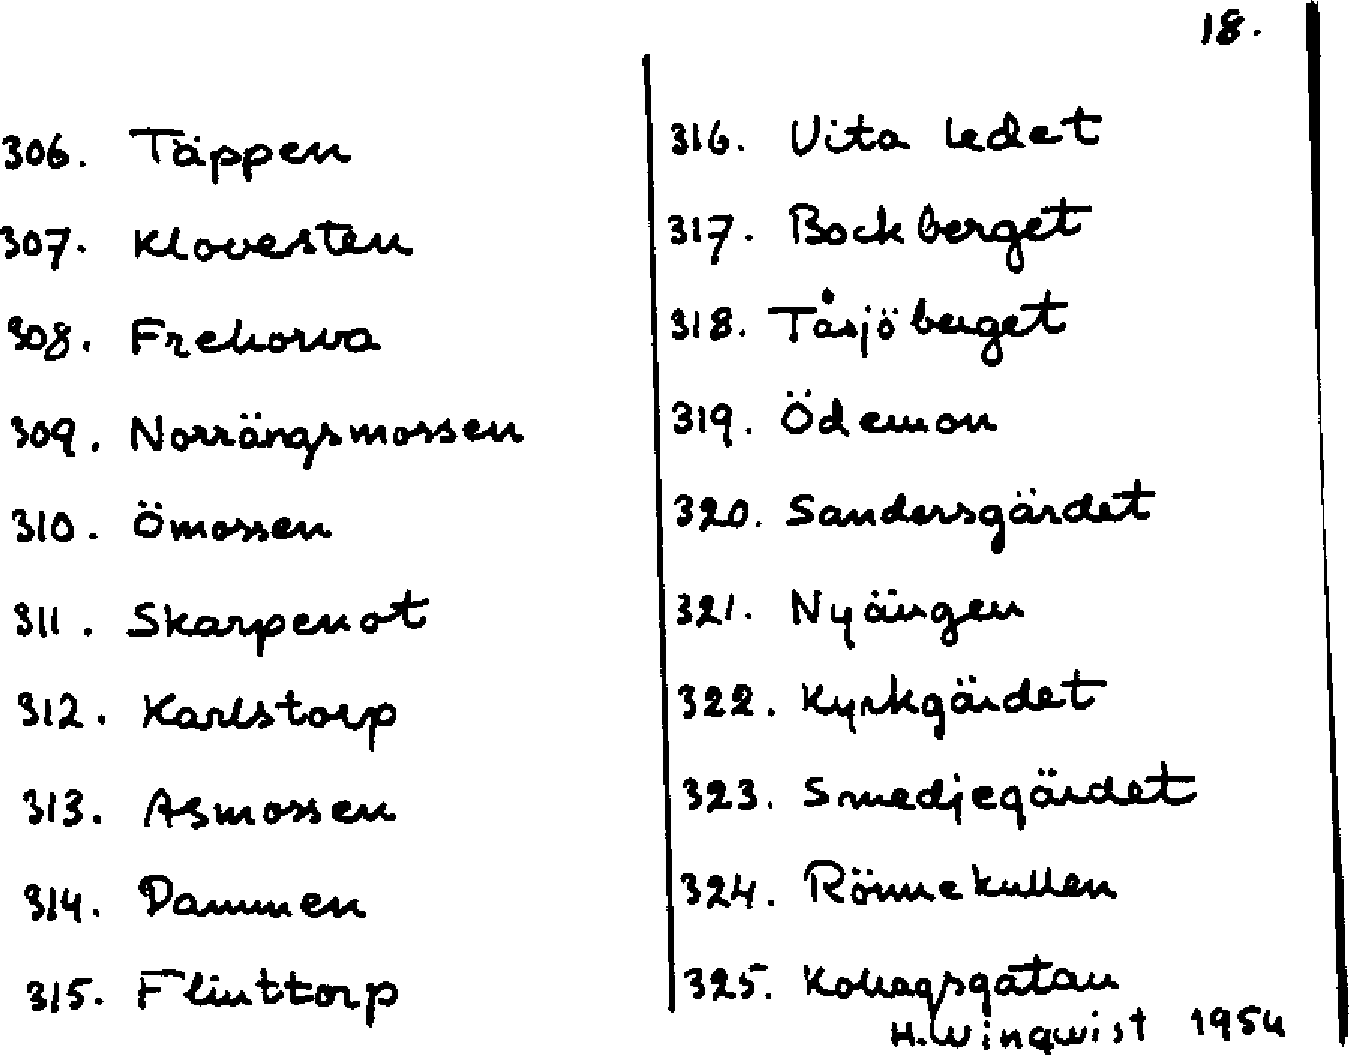 18.
306. Täppen
307. Klovesten
308. Frehorva
309. Norrängsmossen
310. Ömossen
311. Skarpenot
312. Karlstorp
313. Asmossen
314. Dammen
315. Flinttorp
316. Vita ledet
317. Bockberget
318. Tåsjöberget
319. Ödemon
320. Sandersgärdet
321. Nyängen
322. Kyrkgärdet
323. Smedjegärdet
324. Rönnekullen
325. Kohagsgatan
H. Winqwist 1954